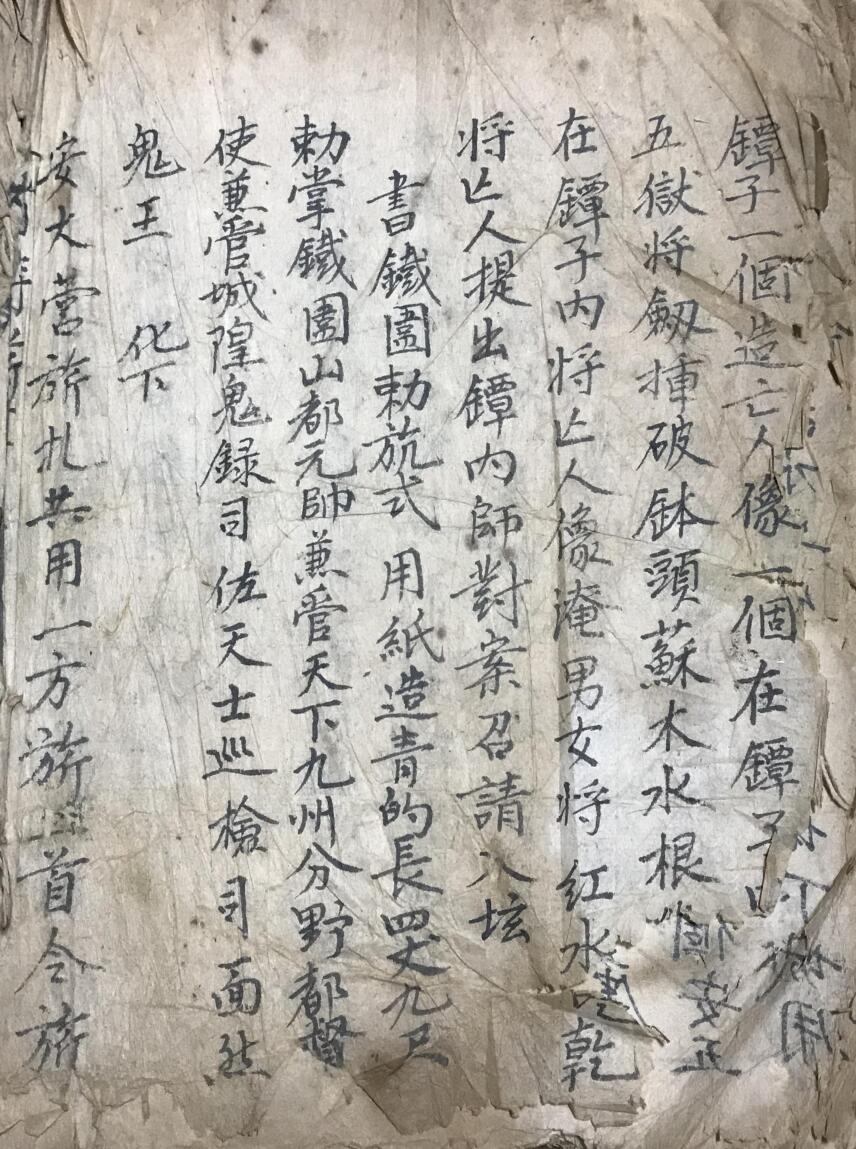 鐔子一個造亡人像一個在鐔子
五獄將劔揷破鉢頭蘇木水根
在鐔子内将亾人像淹男女将紅水乾
将亾人提出鐔内師對案召請入坛
書鐵圍勅旈式 用紙造青的長四丈九尺
勅掌鐵圍山都元帥兼管天下九州分野都督
使兼管城隍鬼録司佐天士巡檢司面然
鬼王 化下
安大营旂扎共用一方旂首令旂